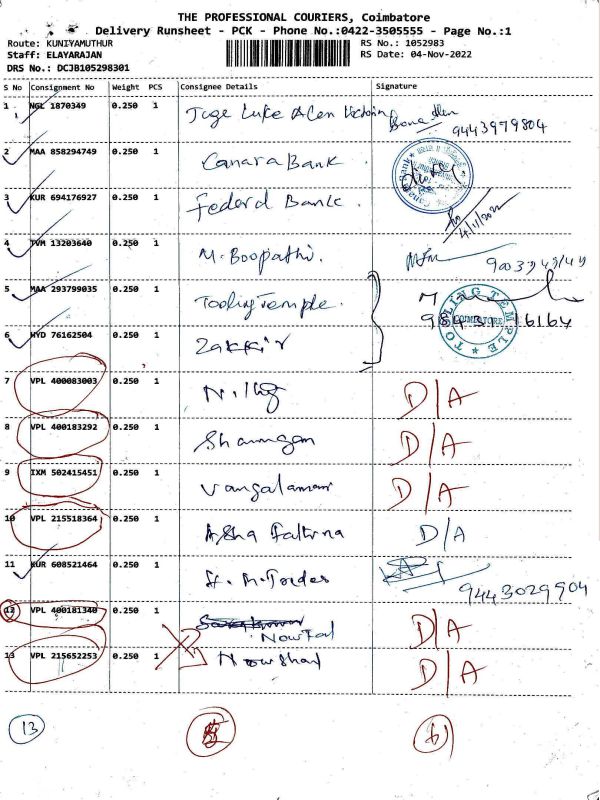 THE PROFESSIONAL COURIERS, Coimbatore
Delivery Runsheet - PCK - Phone No.:0422-3505555 - Page No.:1
Route: KUNIYAMUTHUR RS No.: 1052983
Staff: ELAYARAJAN RS Date: 04-Nov-2022
DRS No.: DCJB105298301
S No Consignment No Weight PCS Consignee Details Signature
1 NGL 1870349 0.250 1 9443979804
2 MAA 858294749 0.250 1 Canara Bank
3 KUR 694176927 0.250 1 Federal Bank 4/11/2022
4 TVM 13203640 0.250 1 M. Boopathi.
5 MAA 293799035 0.250 1 Tooling Temple.
TOOLING TEMPLE
COIMBATORE
6 HYD 76162504 0.250 1 Zakkir
7 VPL 400083003 0.250 1 D/A
8 VPL 400183292 0.250 1 D/A
9 IXM 502415451 0.250 1 D/A
10 VPL 215518364 0.250 1 D/A
11 KUR 608521464 0.250 1 9443029904
12 VPL 400181340 0.250 1 D/A
13 VPL 215652253 0.250 1 Nowshad D/A
13